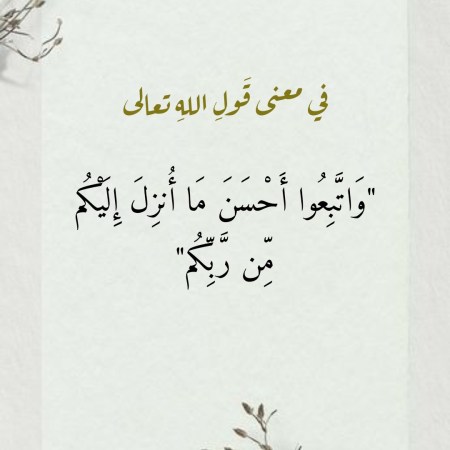 في معنى قَولِ اللهِ تعالى
"وَاتَّبِعُوا أَحْسَنَ مَا أُنزِلَ إِلَيْكُم
مِّن رَّبِّكُم"